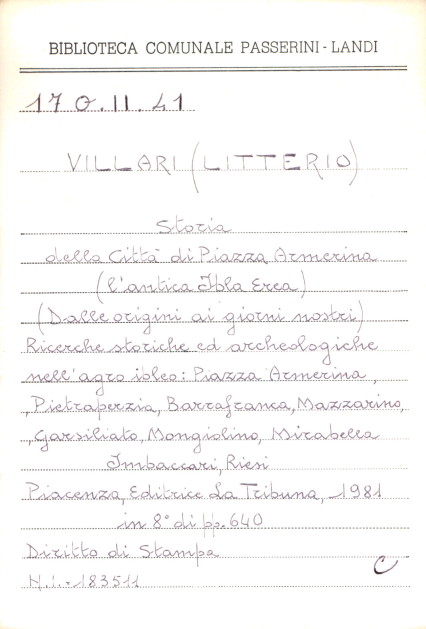 BIBLIOTECA COMUNALE PASSERINI - LANDI
170.II.41
VILLARI (LITTERIO)
Storia
della Città di Piazza Armerina
(l'antica Ibla Erea)
(Dalle origini ai giorni nostri)
Ricerche storiche ed archeologiche
nell'agro ibleo: Piazza Armerina,
Pietraperzia, Barrafranca, Mazzarino,
Garsiliato, Mongiolino, Mirabella
Imbaccari, Riesi
Piacenza, Editrice La Tribuna, 1981
in 8° di pp. 640
Diritto di Stampa
C
N.i.-183511